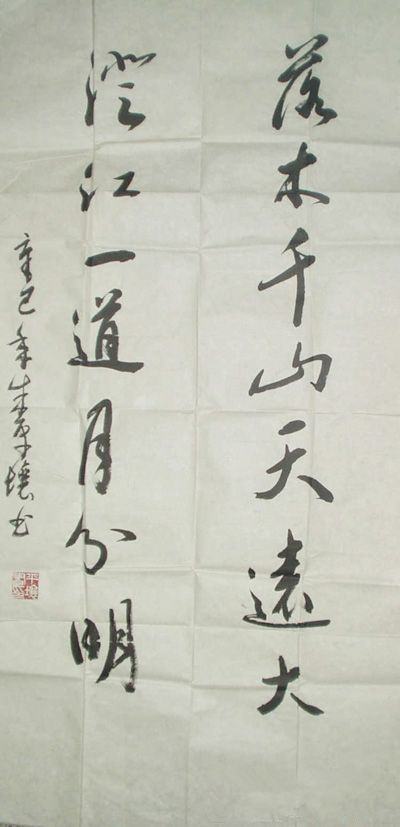 落木千山天遠大
澄江一道月分明
辛巳年朱厚壤书